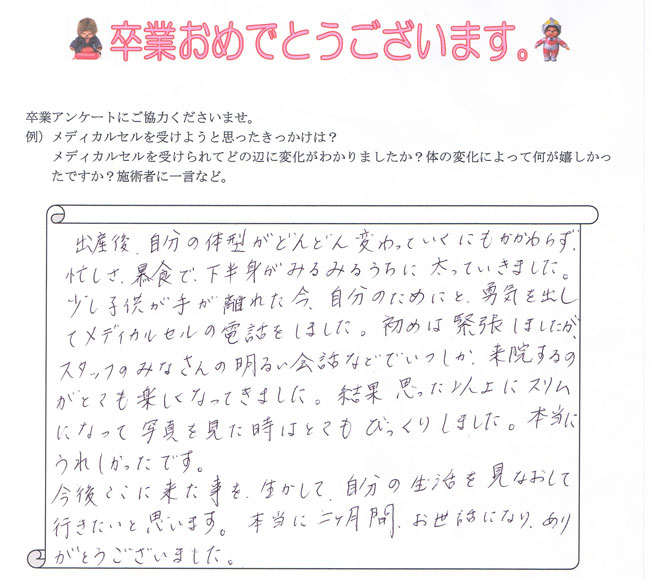 卒業おめでとうございます。
卒業アンケートにご協力くださいませ。
例）メディカルセルを受けようと思ったきっかけは？
メディカルセルを受けられてどの辺に変化がわかりましたか？体の変化によって何が嬉しかっ
たですか？施術者に一言など。
出産後、自分の体型がどんどん変わっていくにもかかわらず、
忙しさ、暴食で、下半身がみるみるうちに太っていきました。
少し子供が手が離れた今、自分のためにと、勇気を出し
てメディカルセルの電話をしました。初めは緊張しましたが、
スタッフのみなさんの明るい会話などでいつしか、来院するの
がとても楽しくなってきました。結果思った以上にスリム
になって写真を見た時はとてもびっくりしました。本当に
うれしかったです。
今後ここに来た事を、生かして、自分の生活を見なおして
行きたいと思います。本当に二ヶ月間、お世話になり、あり
がとうございました。